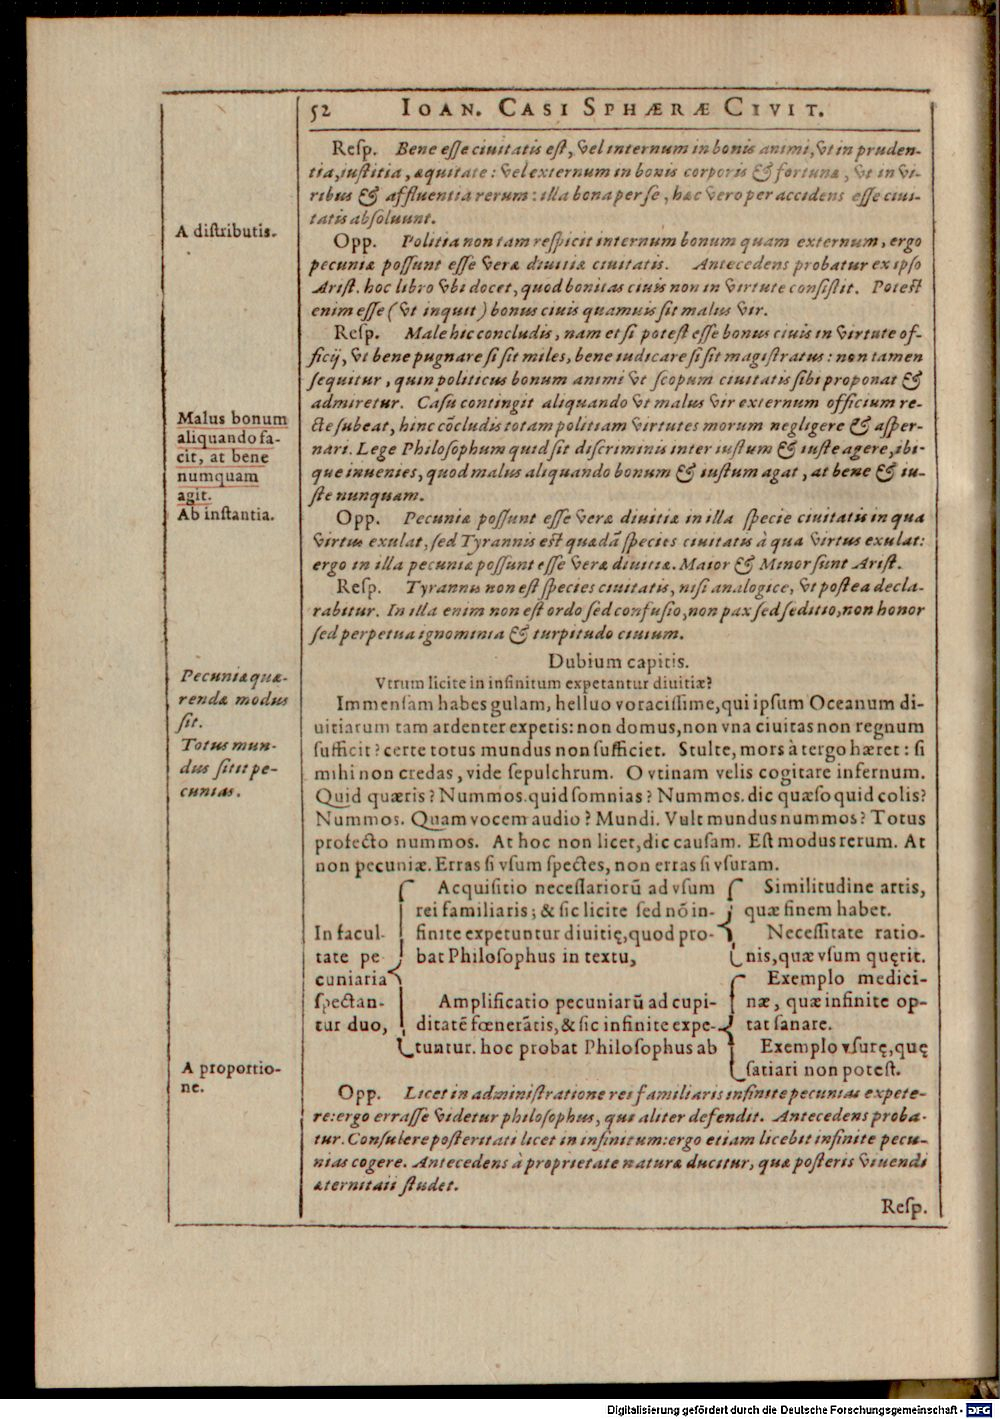 52 IOAN. CASI SPHÆRÆ CIVIT.
Reſp. Bene eſſe ciuitatis eſt, vel internum in bonis animi, vt in pruden-
tia, iuſtitia, æquitate: vel externum in bonis corporis & fortunæ, vt in vi-
ribus & affluentia rerum: illa bona per ſe, hæc vero per accidens eſſe ciui-
tatis abſoluunt.
A diſtributis.
Opp. Politia non tam reſpicit internum bonum quam externum, ergo
pecuniæ poſſunt eſſe veræ diuitiæ ciuitatis. Antecedens probatur ex ipſo
Ariſt. hoc libro vbi docet, quod bonitas ciuis non in virtute conſiſtit. Poteſt
enim eſſe (vt inquit) bonus ciuis quamuis ſit malus vir.
Reſp. Male hic concludis, nam etſi poteſt eſſe bonus ciuis in virtute of-
ficij, vt bene pugnare ſi ſit miles, bene iudicare ſi ſit magiſtratus: non tamen
ſequitur, quin politicus bonum animi vt ſcopum ciuitatis ſibi proponat &
admiretur. Caſu contingit aliquando vt malus vir externum officium re-
cte ſubeat, hinc cōcludis totam politiam virtutes morum negligere & aſper-
nari. Lege Philoſophum quid ſit diſcriminis inter iuſtum & iuſte agere, ibi-
que inuenies, quod malus aliquando bonum & iuſtum agat, at bene & iu-
ſte nunquam.
Malus bonum
aliquando fa-
cit, at bene
numquam
agit.
Ab inſtantia.
Opp. Pecuniæ poſſunt eſſe veræ diuitiæ in illa ſpecie ciuitatis in qua
virtus exulat, ſed Tyrannis eſt quædā ſpecies ciuitatis à qua virtus exulat:
ergo in illa pecuniæ poſſunt eſſe veræ diuitiæ. Maior & Minor ſunt Ariſt.
Reſp. Tyrannis non eſt ſpecies ciuitatis, niſi analogice, vt poſtea decla-
rabitur. In illa enim non eſt ordo ſed confuſio, non pax ſed ſeditio, non honor
ſed perpetua ignominia & turpitudo ciuium.
Dubium capitis.
Vtrum licite in infinitum expetantur diuitiæ?
Pecuniæ quæ-
rendæ modus
ſit.
Totus mun-
dus ſitit pe-
cunias.
Immenſam habes gulam, helluo voraciſſime, qui ipſum Oceanum di-
uitiarum tam ardenter expetis: non domus, non vna ciuitas non regnum
ſufficit? certe totus mundus non ſufficiet. Stulte, mors à tergo hæret: ſi
mihi non credas, vide ſepulchrum. O vtinam velis cogitare infernum.
Quid quæris? Nummos. quid ſomnias? Nummos. dic quæſo quid colis?
Nummos. Quam vocem audio? Mundi. Vult mundus nummos? Totus
profecto nummos. At hoc non licet, dic cauſam. Eſt modus rerum. At
non pecuniæ. Erras ſi vſum ſpectes, non erras ſi vſuram.
In facul-
tate pe
cuniaria
ſpectan-
tur duo,
Acquiſitio neceſſariorū ad vſum
rei familiaris; & ſic licite ſed nō in-
finite expetuntur diuitię, quod pro-
bat Philoſophus in textu,
Similitudine artis,
quæ finem habet.
Neceſſitate ratio-
nis, quæ vſum quęrit.
Amplificatio pecuniarū ad cupi-
ditatē fœnerātis, & ſic infinite expe-
tuntur. hoc probat Philoſophus ab
Exemplo medici-
næ, quæ infinite op-
tat ſanare.
Exemplo vſurę, quę
ſatiari non poteſt.
A proportio-
ne.
Opp. Licet in adminiſtratione rei familiaris infinite pecunias expete-
re: ergo erraſſe videtur philoſophus, qui aliter defendit. Antecedens proba-
tur. Conſulere poſteritati licet in infinitum: ergo etiam licebit infinite pecu-
nias cogere. Antecedens à proprietate naturæ ducitur, quæ poſteris viuendi
æternitati ſtudet.
Reſp.
Digitalisierung gefördert durch die Deutsche Forschungsgemeinschaft - DFG